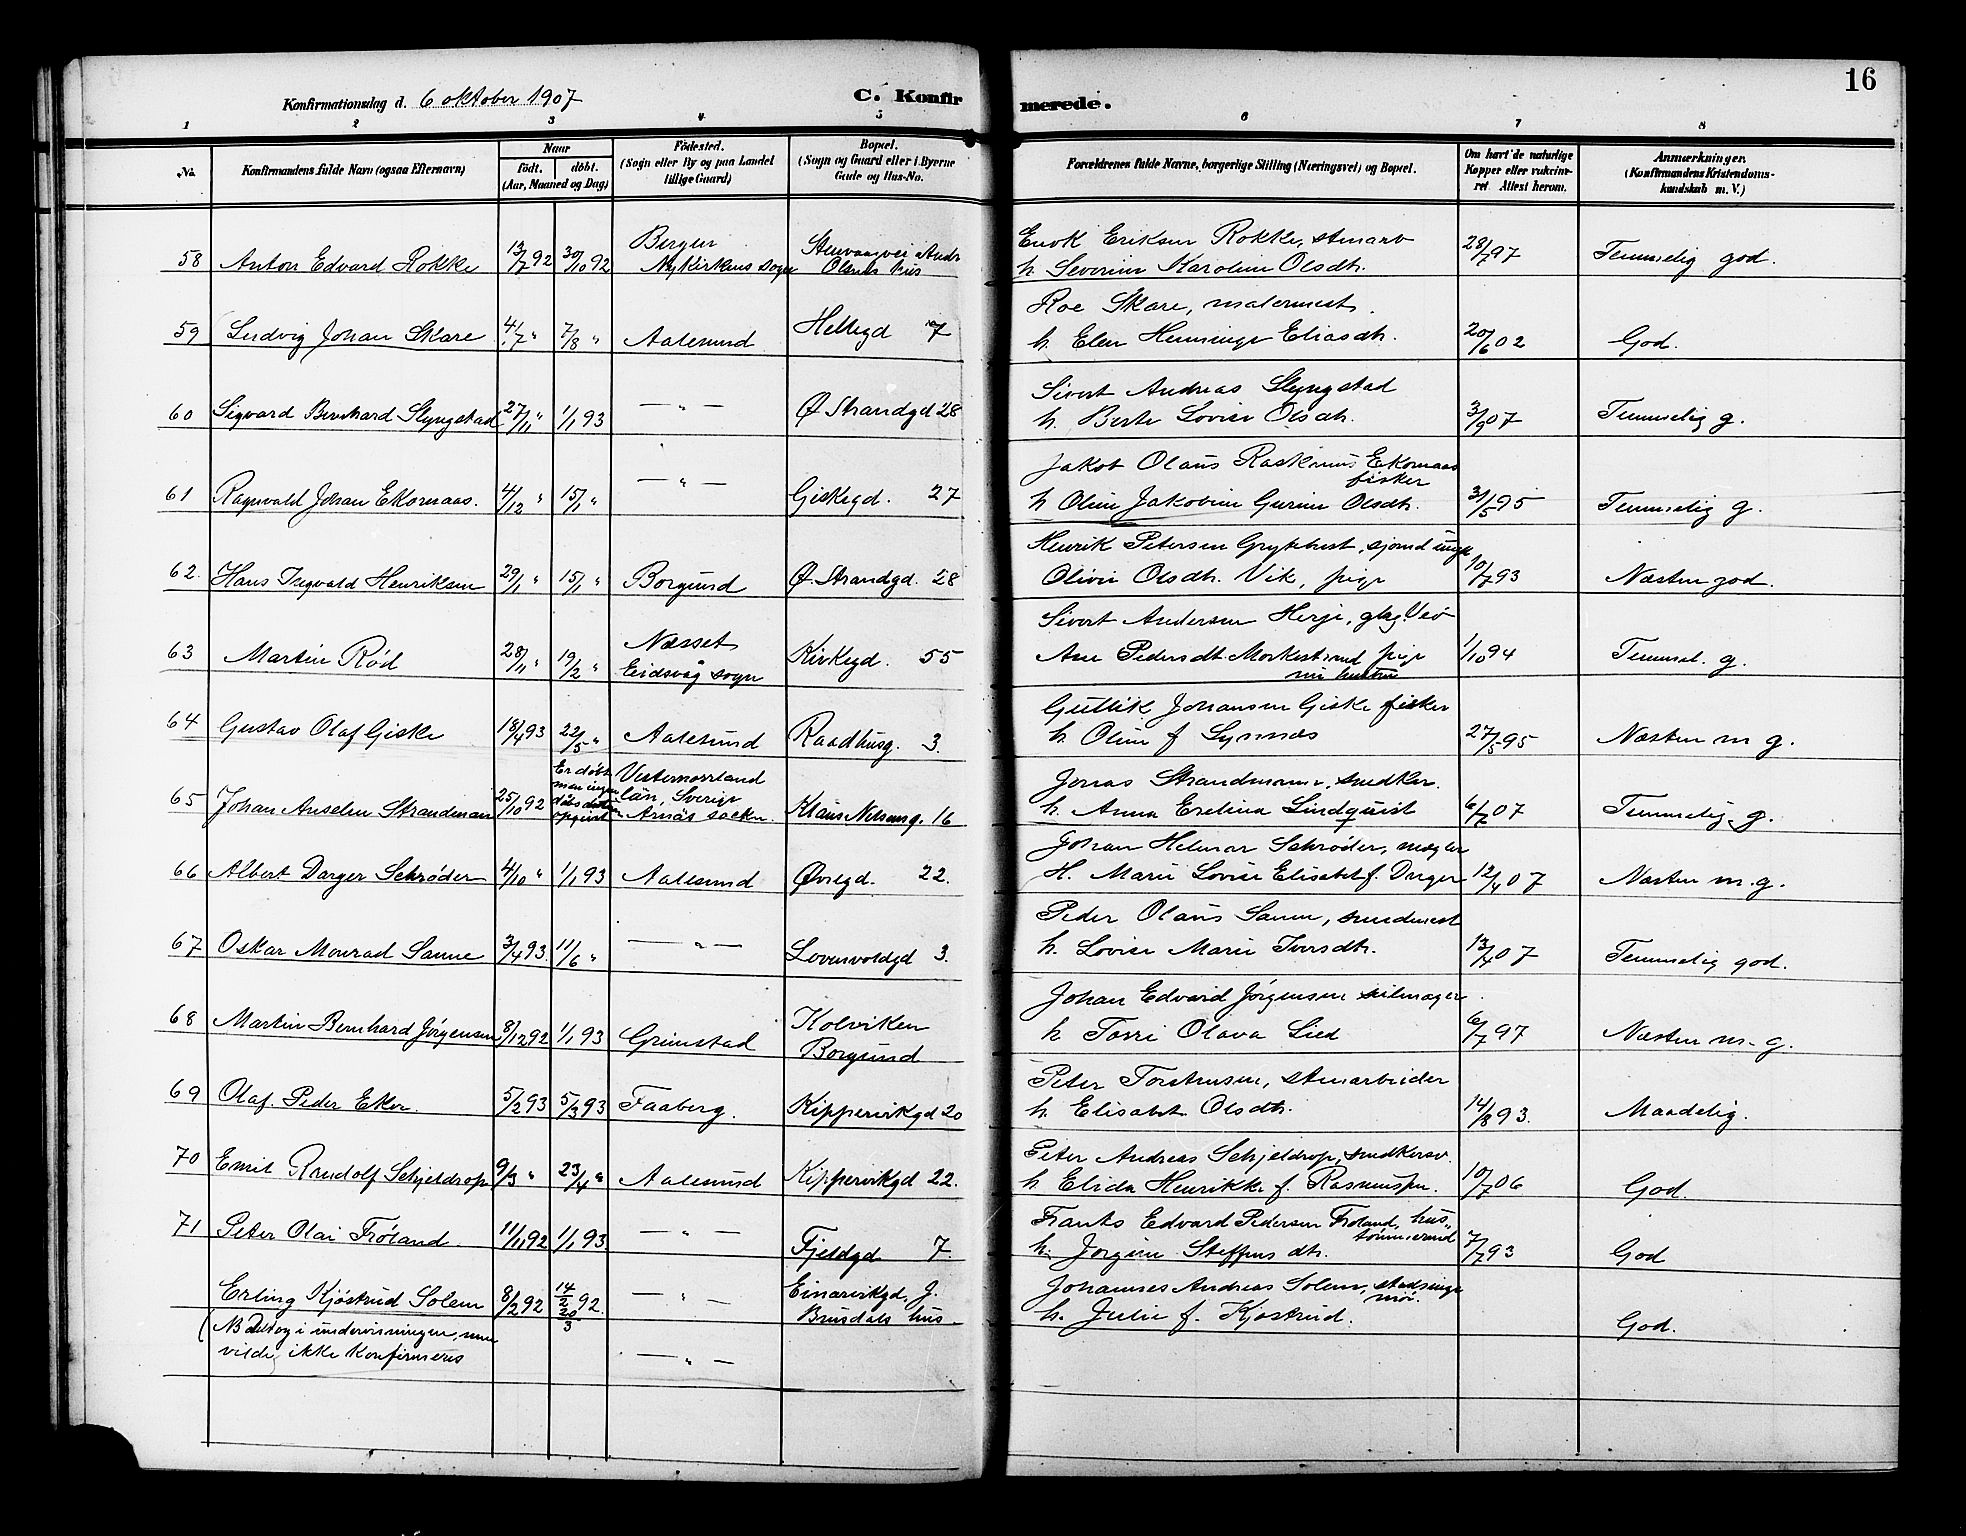 16
Konfirmationsdag d. 6 oktober 1907
C. Konfirmerede.
1 2 3 4 5 6 7 8
No. Konfirmandens fulde Navn (ogsaa Efternavn) Naar født. døbt. (Aar, Maaned og Dag) Fødested. (Sogn eller By og paa Landet tillige Gaard) Bopæl. (Sogn og Gaard eller i Byerne Gade og Hus-No. Forældrenes fulde Navne, borgerlige Stilling (Næringsvei) og Bopæl. Om havt de naturlige Kopper eller vakcineret Attest herom. Anmærkninger. (Konfirmandens Kristendomskundskab m. V.)
58 Anton Edvard Rokke 13/7 92 30/10 92 Bergen Nykirkens sogn Olsens hus
Enok Eriksen Rokke, stenarb
h. Severine Karoline Olsdtr. 28/7 97 Temmelig god.
59 Ludvig Johan Skare 4/7 " 7/8 " Aalesund Hellegd 7
Roe Skare, malermest.
h. Elen Henninge Eliasdtr. 20/6 02 God.
60 Sigvard Bernhard Slyngstad 27/11 " 1/1 93 — " — Ø Strandgd 28
Sivert Andreas Slyngstad
h. Berte Lovise Olsdtr. 3/9 07 Temmelig g.
61 Ragnvald Johan Ekornaas. 4/12 " 15/1 " — " — Giskegd. 27
Jakob Olaus Rasknus Ekornaas
fisker
h Oline Jakobine Gurine Olsdtr. 31/5 95 Temmelig g.
62. Hans Ingvald Henriksen 29/1 " 15/1 " Borgund Ø. Strandgd. 28
Henrik Petersen Grytehust, sjømd ungk
Olivie Olsdtr. Vik, pige 10/7 93 Næsten god.
63 Martin Rød 28/11 " 19/2 " Næsset Eidsvåg sogn Kirkegd. 55
Sivert Andersen Herje, glag. Veø
Ane Pedersdt. Morkestrand pige
nu hustru 1/10 94 Temmel. g.
64 Gustav Olaf Giske 18/4 93 22/5 " Aalesund Raadhusg. 3.
Guttik Johansen Giske fisker
h. Oline f Synnæs 27/5 95 Næsten m g.
65 Johan Anselm Strandman 25/10 92 Er døbt men ingen dåbsdatum opgivet Vesternorrland län, Sverige Arnäs socken. Klaus Nilsensg. 16
Jonas Strandmann, snedker.
h. Anna Evelina Lindquist 6/7 07 Temmelig g.
66 Albert Darger Schrøder 4/10 " 1/1 93 Aalesund Øvregd. 22.
Johan Helmar Schrøder, mægler
H. Marie Lovise Elisabet f. Darger 12/4 07 Næsten m. g.
67 Oskar Monrad Sanne 3/4 93. 11/6 " — " — Lovenvoldgd 3.
Peder Olaus Sanne, smedmest
h. Lovise Marie Iversdtr. 13/4 07 Temmelig god.
68 Martin Bernhard Jørgensen 8/12 92 1/1 93 Grimstad Kolviken Borgund
Johan Edvard Jørgensen seilmager.
h Torri Olava Lied 6/7 97 Næsten m. g.
69 Olaf. Peder Eker. 5/2 93 5/3 93 Faaberg. Kippervikgd 20
Peter Torstensen, stenarbeider
h. Elisabet Olsdtr. 14/8 93. Maadelig.
70 Emil Rudolf Schjeldrop 9/3 " 23/4 " Aalesund Kippervikgd 22.
Peter Andreas Schjeldrop, snedkersv.
h Elida Henrikke f. Rasmussen. 10/7 06 God.
71 Peter Olai Frøland. 11/11 92 1/1 93. — " — Fjeldgd 7.
Frants Edvard Pedersen Frøland, hus-
tømmermd
h. Jørgine Steffensdtr. 7/7 93 God
Erling Kjøstrud Solem 8/2 92 14/2 92. 20/3 — " — Einarvikgd, J. Brusdals hus
Johannes Andreas Solem, stadsinge
niør.
h. Julie f. Kjøstrud. God.
(NB Deltog i undervisningen, men
vilde ikke konfirmeres — " —